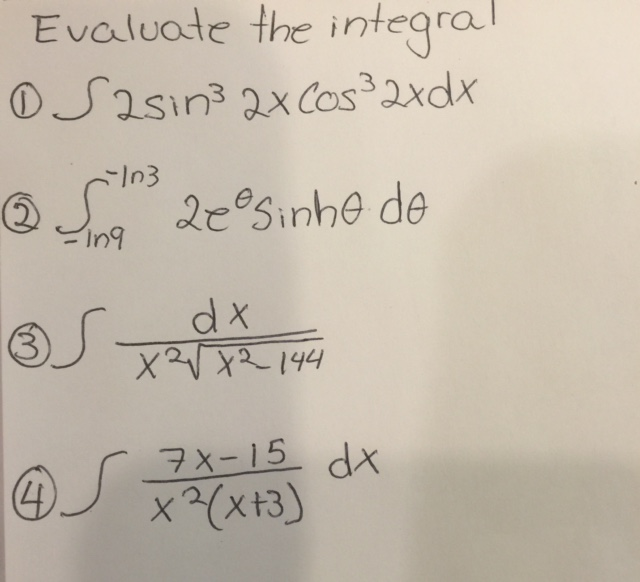 Evaluate the integral
① ∫ 2sin³ 2x Cos³ 2x dx
② ∫_{-ln9}^{-ln3} 2e^θ sinhθ dθ
③ ∫ dx / (x²√(x²-144))
④ ∫ (7x-15) / (x²(x+3)) dx